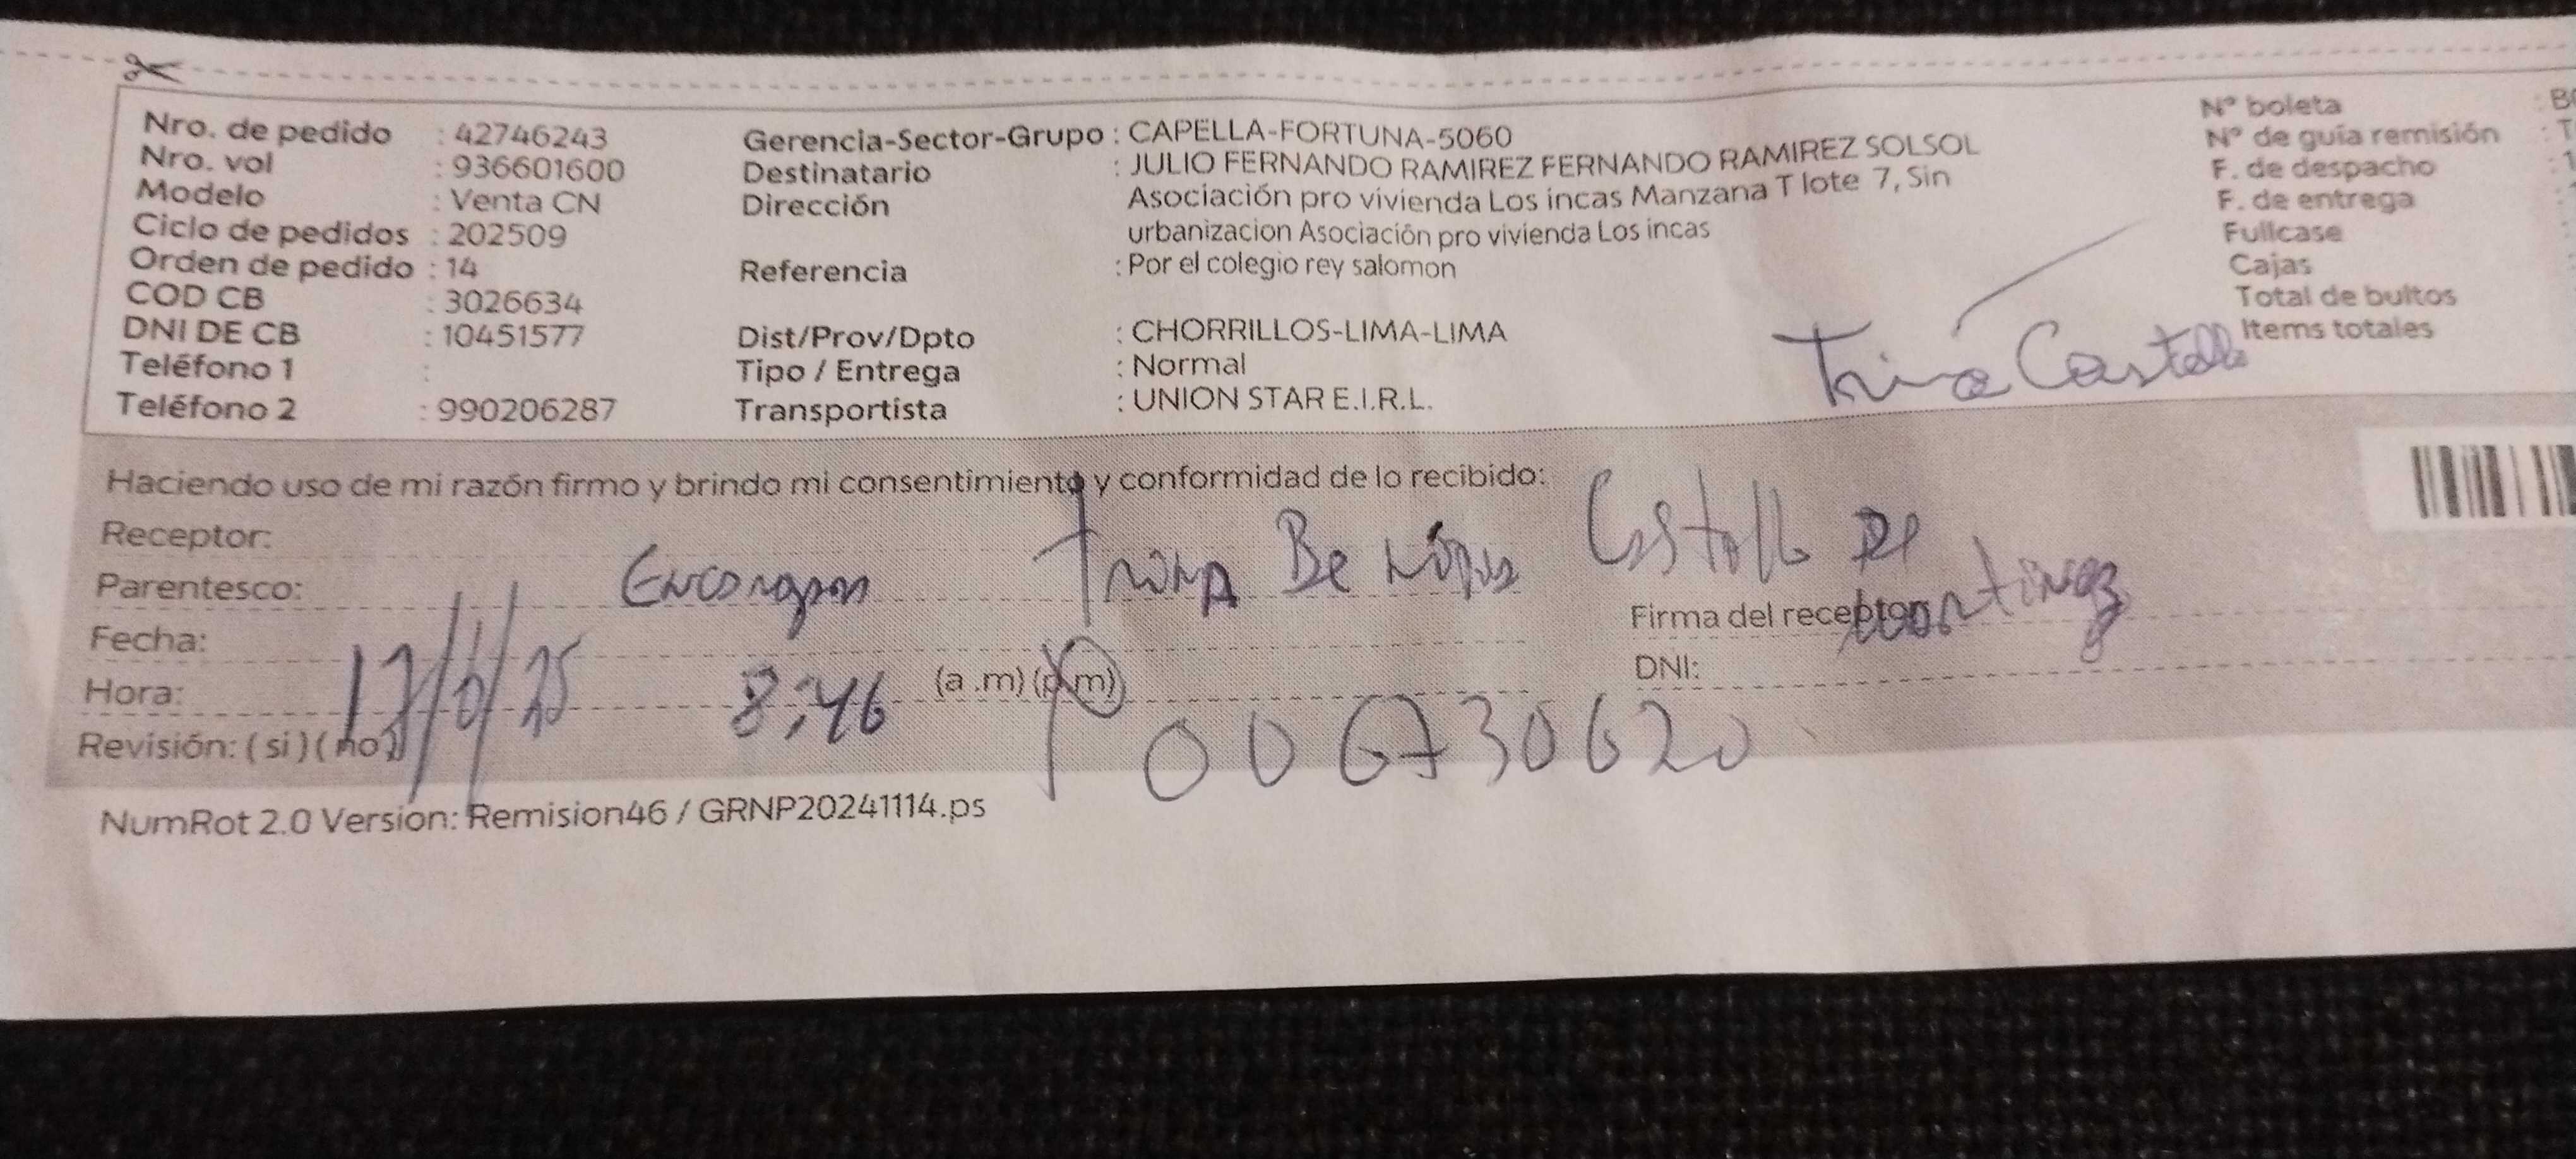 Nro. de pedido : 42746243
Nro. vol : 936601600
Modelo : Venta CN
Ciclo de pedidos : 202509
Orden de pedido : 14
COD CB : 3026634
DNI DE CB : 10451577
Teléfono 1 :
Teléfono 2 : 990206287
Gerencia-Sector-Grupo : CAPELLA-FORTUNA-5060
Destinatario : JULIO FERNANDO RAMIREZ FERNANDO RAMIREZ SOLSOL
Dirección Asociación pro vivienda Los incas Manzana T lote 7, Sin
urbanizacion Asociación pro vivienda Los incas
Referencia : Por el colegio rey salomon
Dist/Prov/Dpto : CHORRILLOS-LIMA-LIMA
Tipo / Entrega : Normal
Transportista : UNION STAR E.I.R.L.
N° boleta : B
N° de guía remisión : T
F. de despacho : 1
F. de entrega :
Fullcase :
Cajas :
Total de bultos
Items totales
Trina Castillo
Haciendo uso de mi razón firmo y brindo mi consentimiento y conformidad de lo recibido:
Receptor: Trina Castillo de
Parentesco:
Firma del receptor:
Fecha: 17/6/25
DNI: 006730620
Hora: 8:46 (a .m) (p.m)
Revisión: ( si ) ( no )
NumRot 2.0 Version: Remision46 / GRNP20241114.ps